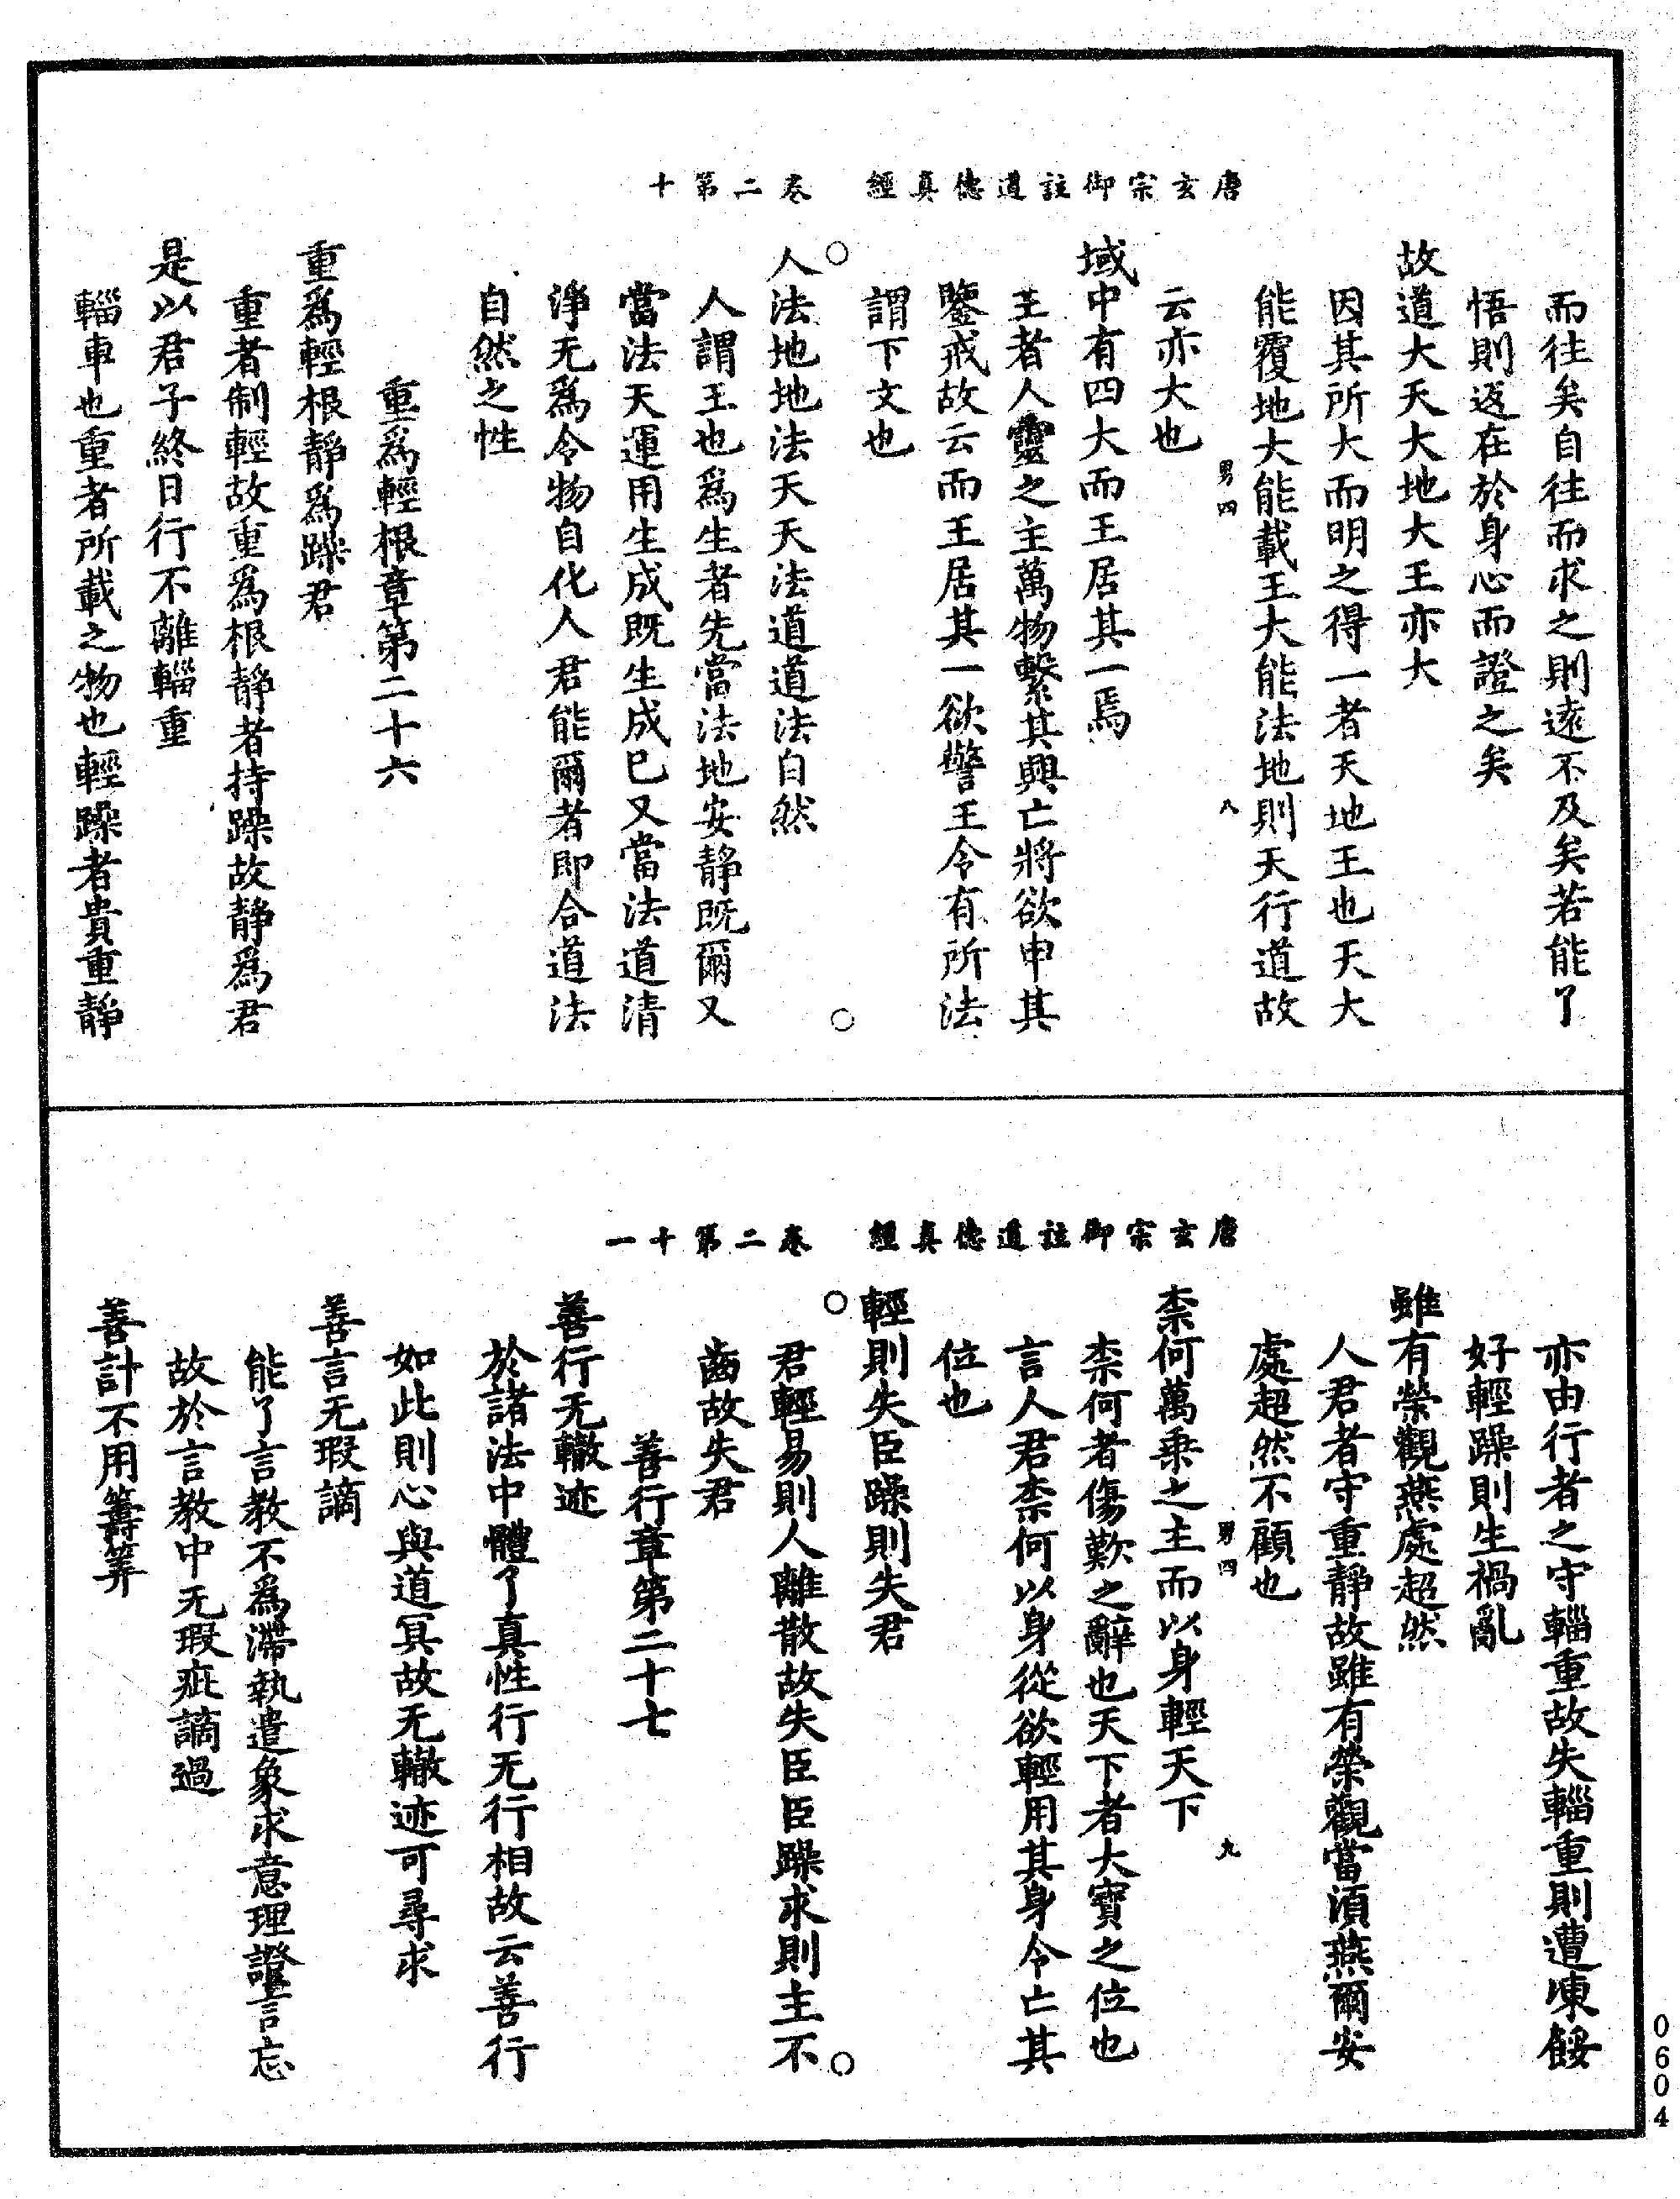 唐玄宗御註道德真經　卷二第十
而往矣自往而求之則遠不及矣若能了
悟則返在於身心而證之矣
故道大天大地大王亦大
因其所大而明之得一者天地王也天大
能覆地大能載王大能法地則天行道故
男四　八
云亦大也
域中有四大而王居其一焉
王者人靈之主萬物繫其興亡將欲申其
鑒戒故云而王居其一欲警王令有所法
謂下文也
○　○
人法地地法天天法道道法自然
人謂王也為生者先當法地安靜既爾又
當法天運用生成既生成已又當法道清
淨无為令物自化人君能爾者即合道法
自然之性
重為輕根章第二十六
重為輕根靜為躁君
重者制輕故重為根靜者持躁故靜為君
是以君子終日行不離輜重
輜車也重者所載之物也輕躁者貴重靜
唐玄宗御註道德真經　卷二第十一
亦由行者之守輜重故失輜重則遭凍餒
好輕躁則生禍亂
雖有榮觀燕處超然
人君者守重靜故雖有榮觀當須燕爾安
處超然不顧也
男四　九
柰何萬乗之主而以身輕天下
柰何者傷歎之辭也天下者大寶之位也
言人君柰何以身從欲輕用其身令亡其
位也
輕則失臣躁則失君
○　○
君輕易則人離散故失臣臣躁求則主不
齒故失君
善行章第二十七
善行无轍迹
於諸法中體了真性行无行相故云善行
如此則心與道冥故无轍迹可尋求
善言无瑕讁
能了言教不為滯執遣象求意理證言忘
故於言教中无瑕疵讁過
善計不用籌筭
0604